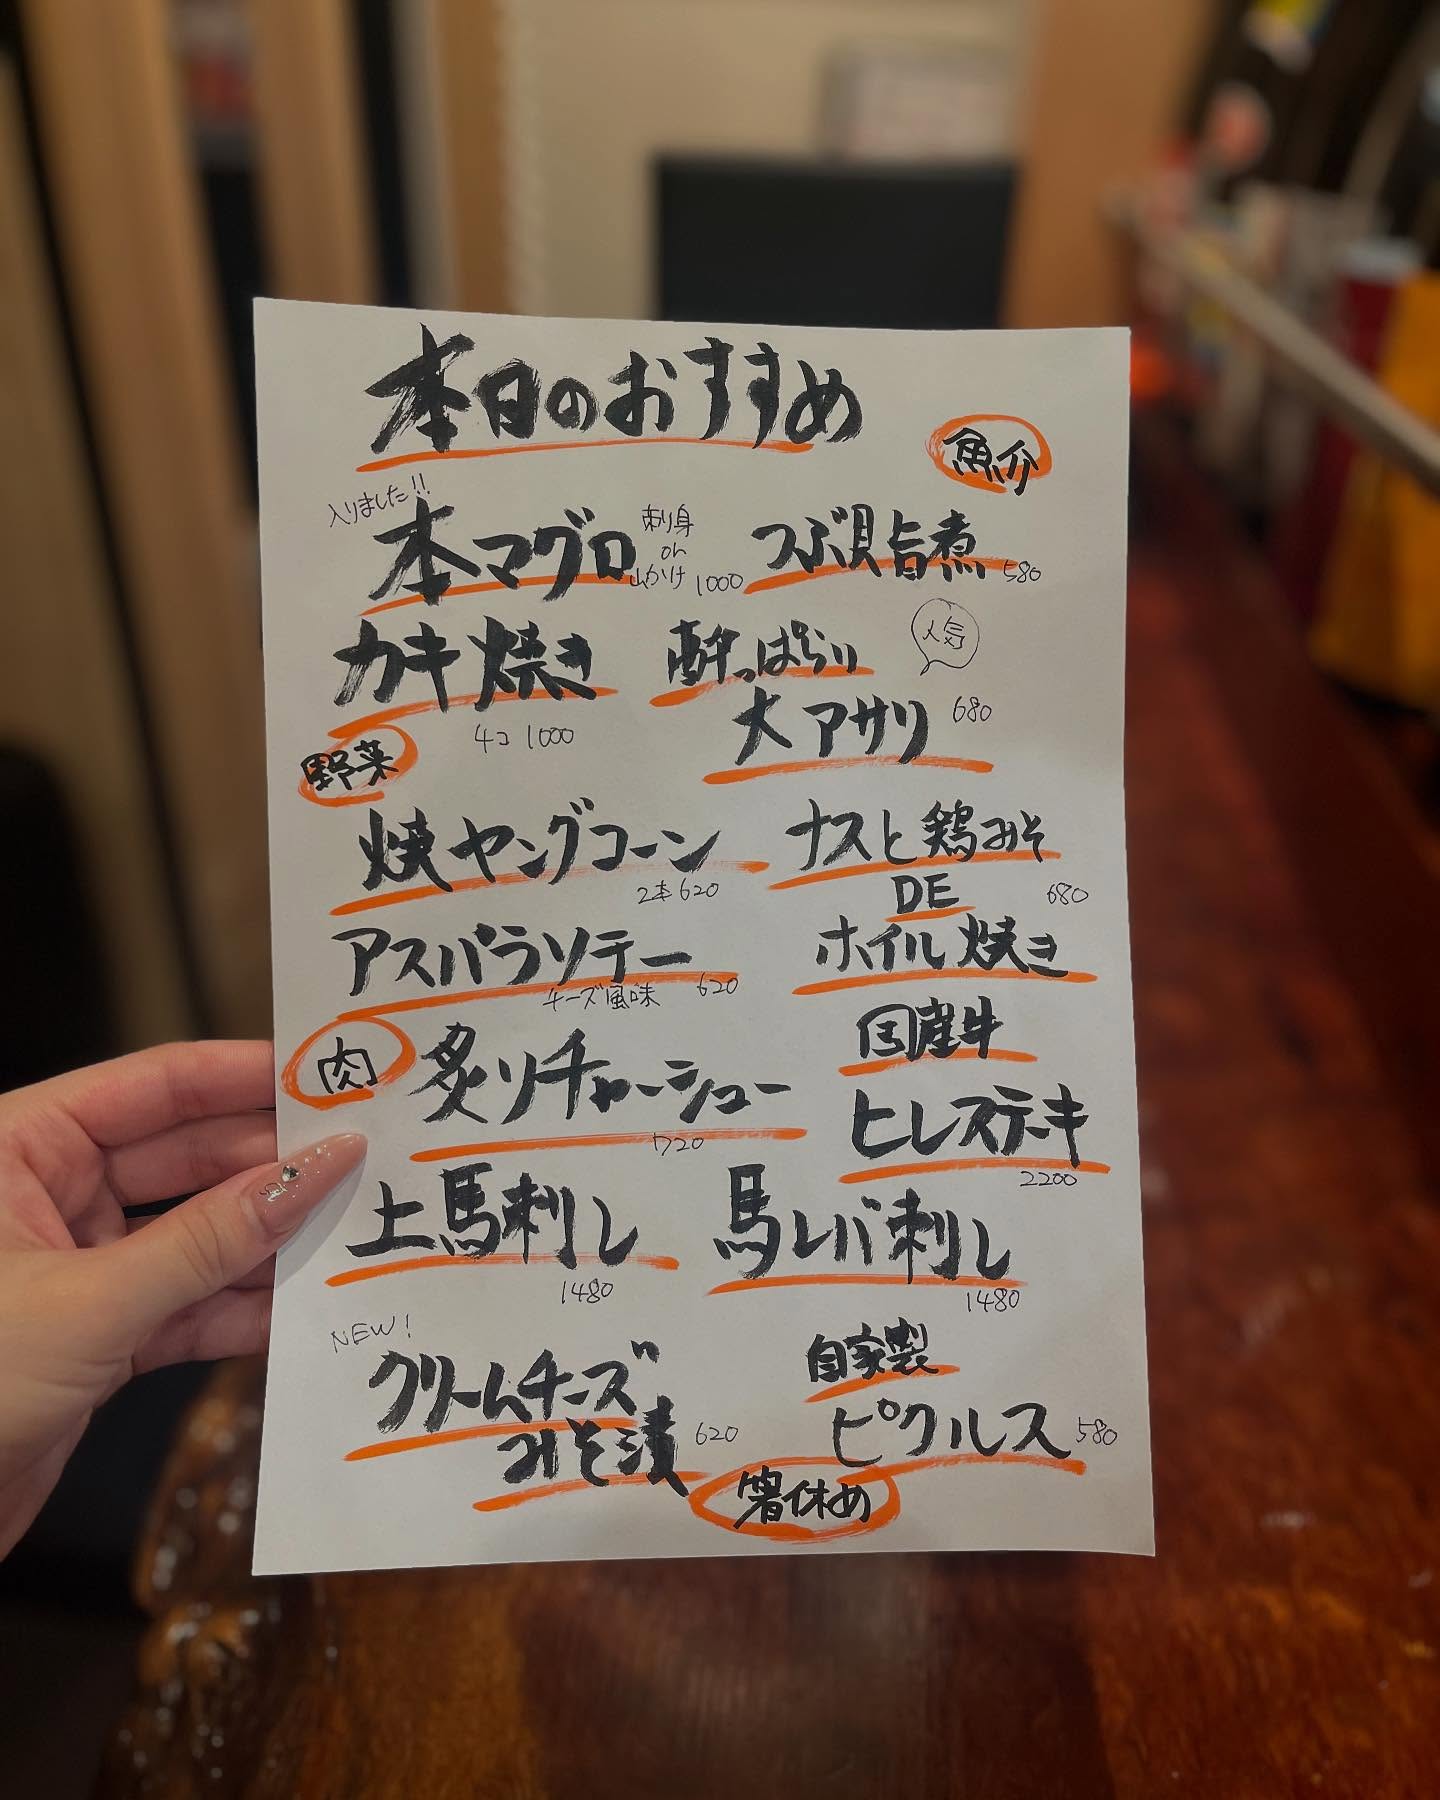 本日のおすすめ
魚介
入りました!!
本マグロ
刺身
or
山かけ 1000
つぶ貝旨煮 580
カキ焼き
4コ 1000
酔っぱらい
大アサリ 680
人気
野菜
焼ヤングコーン
2本 620
ナスと鶏みそ
DE 680
ホイル焼き
アスパラソテー
チーズ風味 620
肉
炙りチャーシュー
720
国産牛
ヒレステーキ
2200
上馬刺し
1480
馬レバ刺し
1480
NEW!
クリームチーズ
みそ漬 620
自家製
ピクルス 580
箸休め